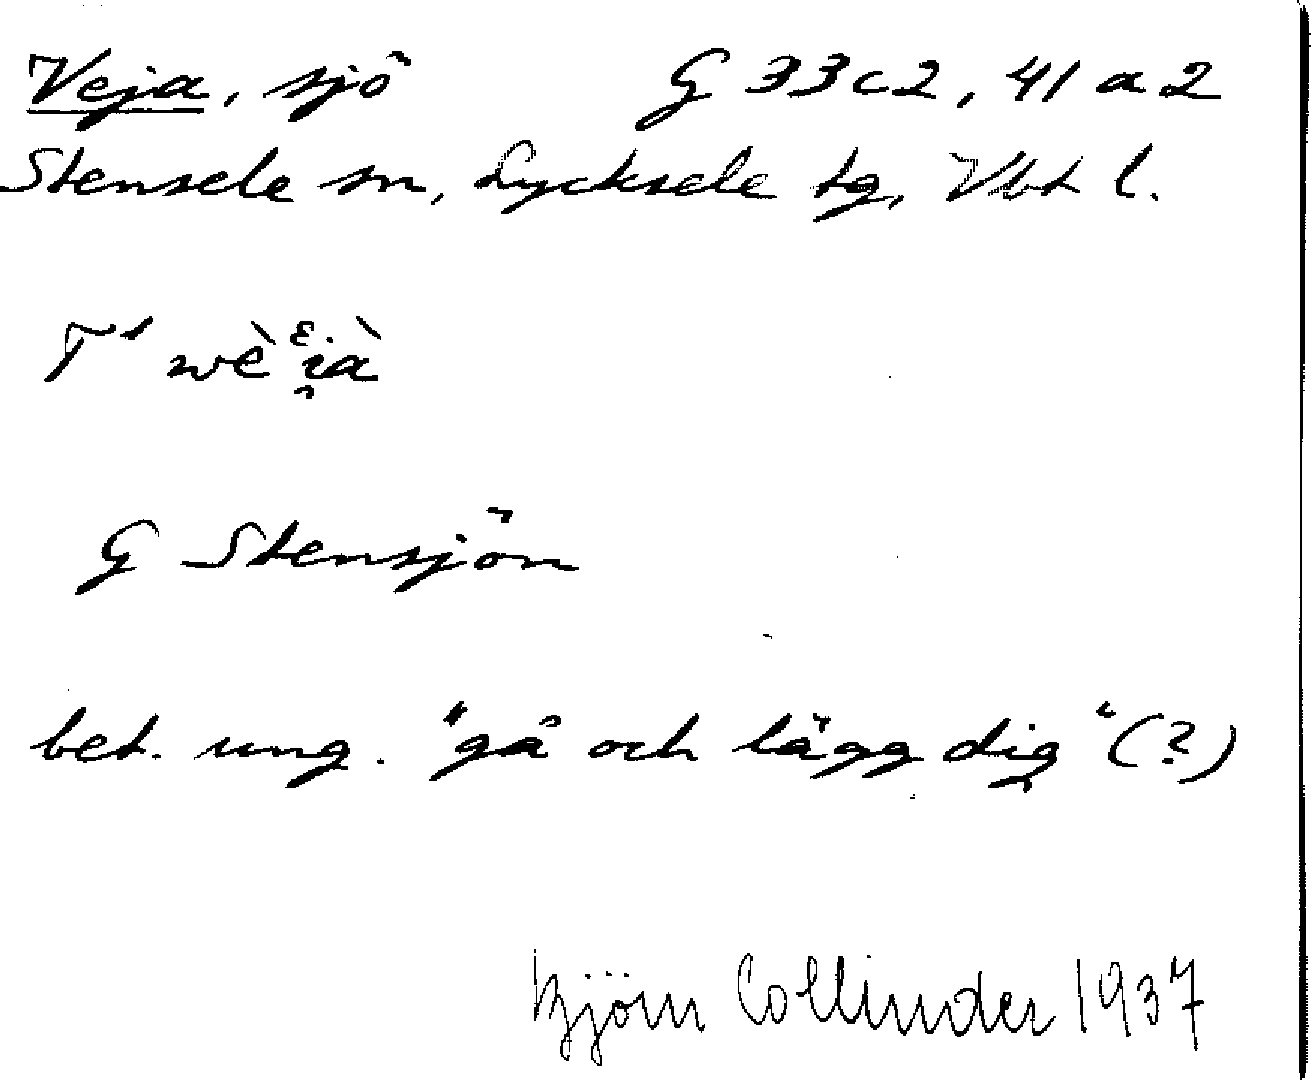 Veja, sjö G 33c2, 41 a 2
Stensele sn, Lycksele tg, Vbt l.
G Stensjön
bet. ung. "gå och lägg dig" (?)
Björn Collinder 1937